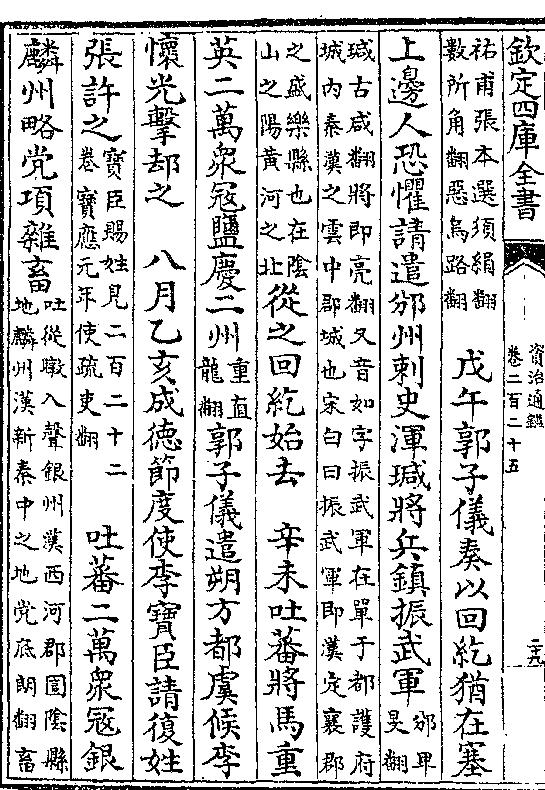 欽定四庫全書
資治通鑑
卷二百二十五
二十九
祐甫張本選須絹翻
數所角翻惡烏路翻
戊午郭子儀奏以回紇猶在塞
上邊人恐懼請遣邠州刺史渾瑊將兵鎮振武軍
邠卑
旻翻
瑊古咸翻將即亮翻又音如字振武軍在單于都護府
城内秦漢之雲中郡城也宋白曰振武軍即漢定襄郡
之盛樂縣也在陰
山之陽黄河之北
從之回紇始去 辛未吐蕃將馬重
英二萬衆寇鹽慶二州
重直
龍翻
郭子儀遣朔方都虞候李
懷光擊却之 八月乙亥成德節度使李寶臣請復姓
張許之
寶臣賜姓見二百二十二
卷寶應元年使疏吏翻
吐蕃二萬衆寇銀
麟州略党項雜畜
吐從暾入聲銀州漢西河郡圁陰縣
地麟州漢新秦中之地党底朗翻畜